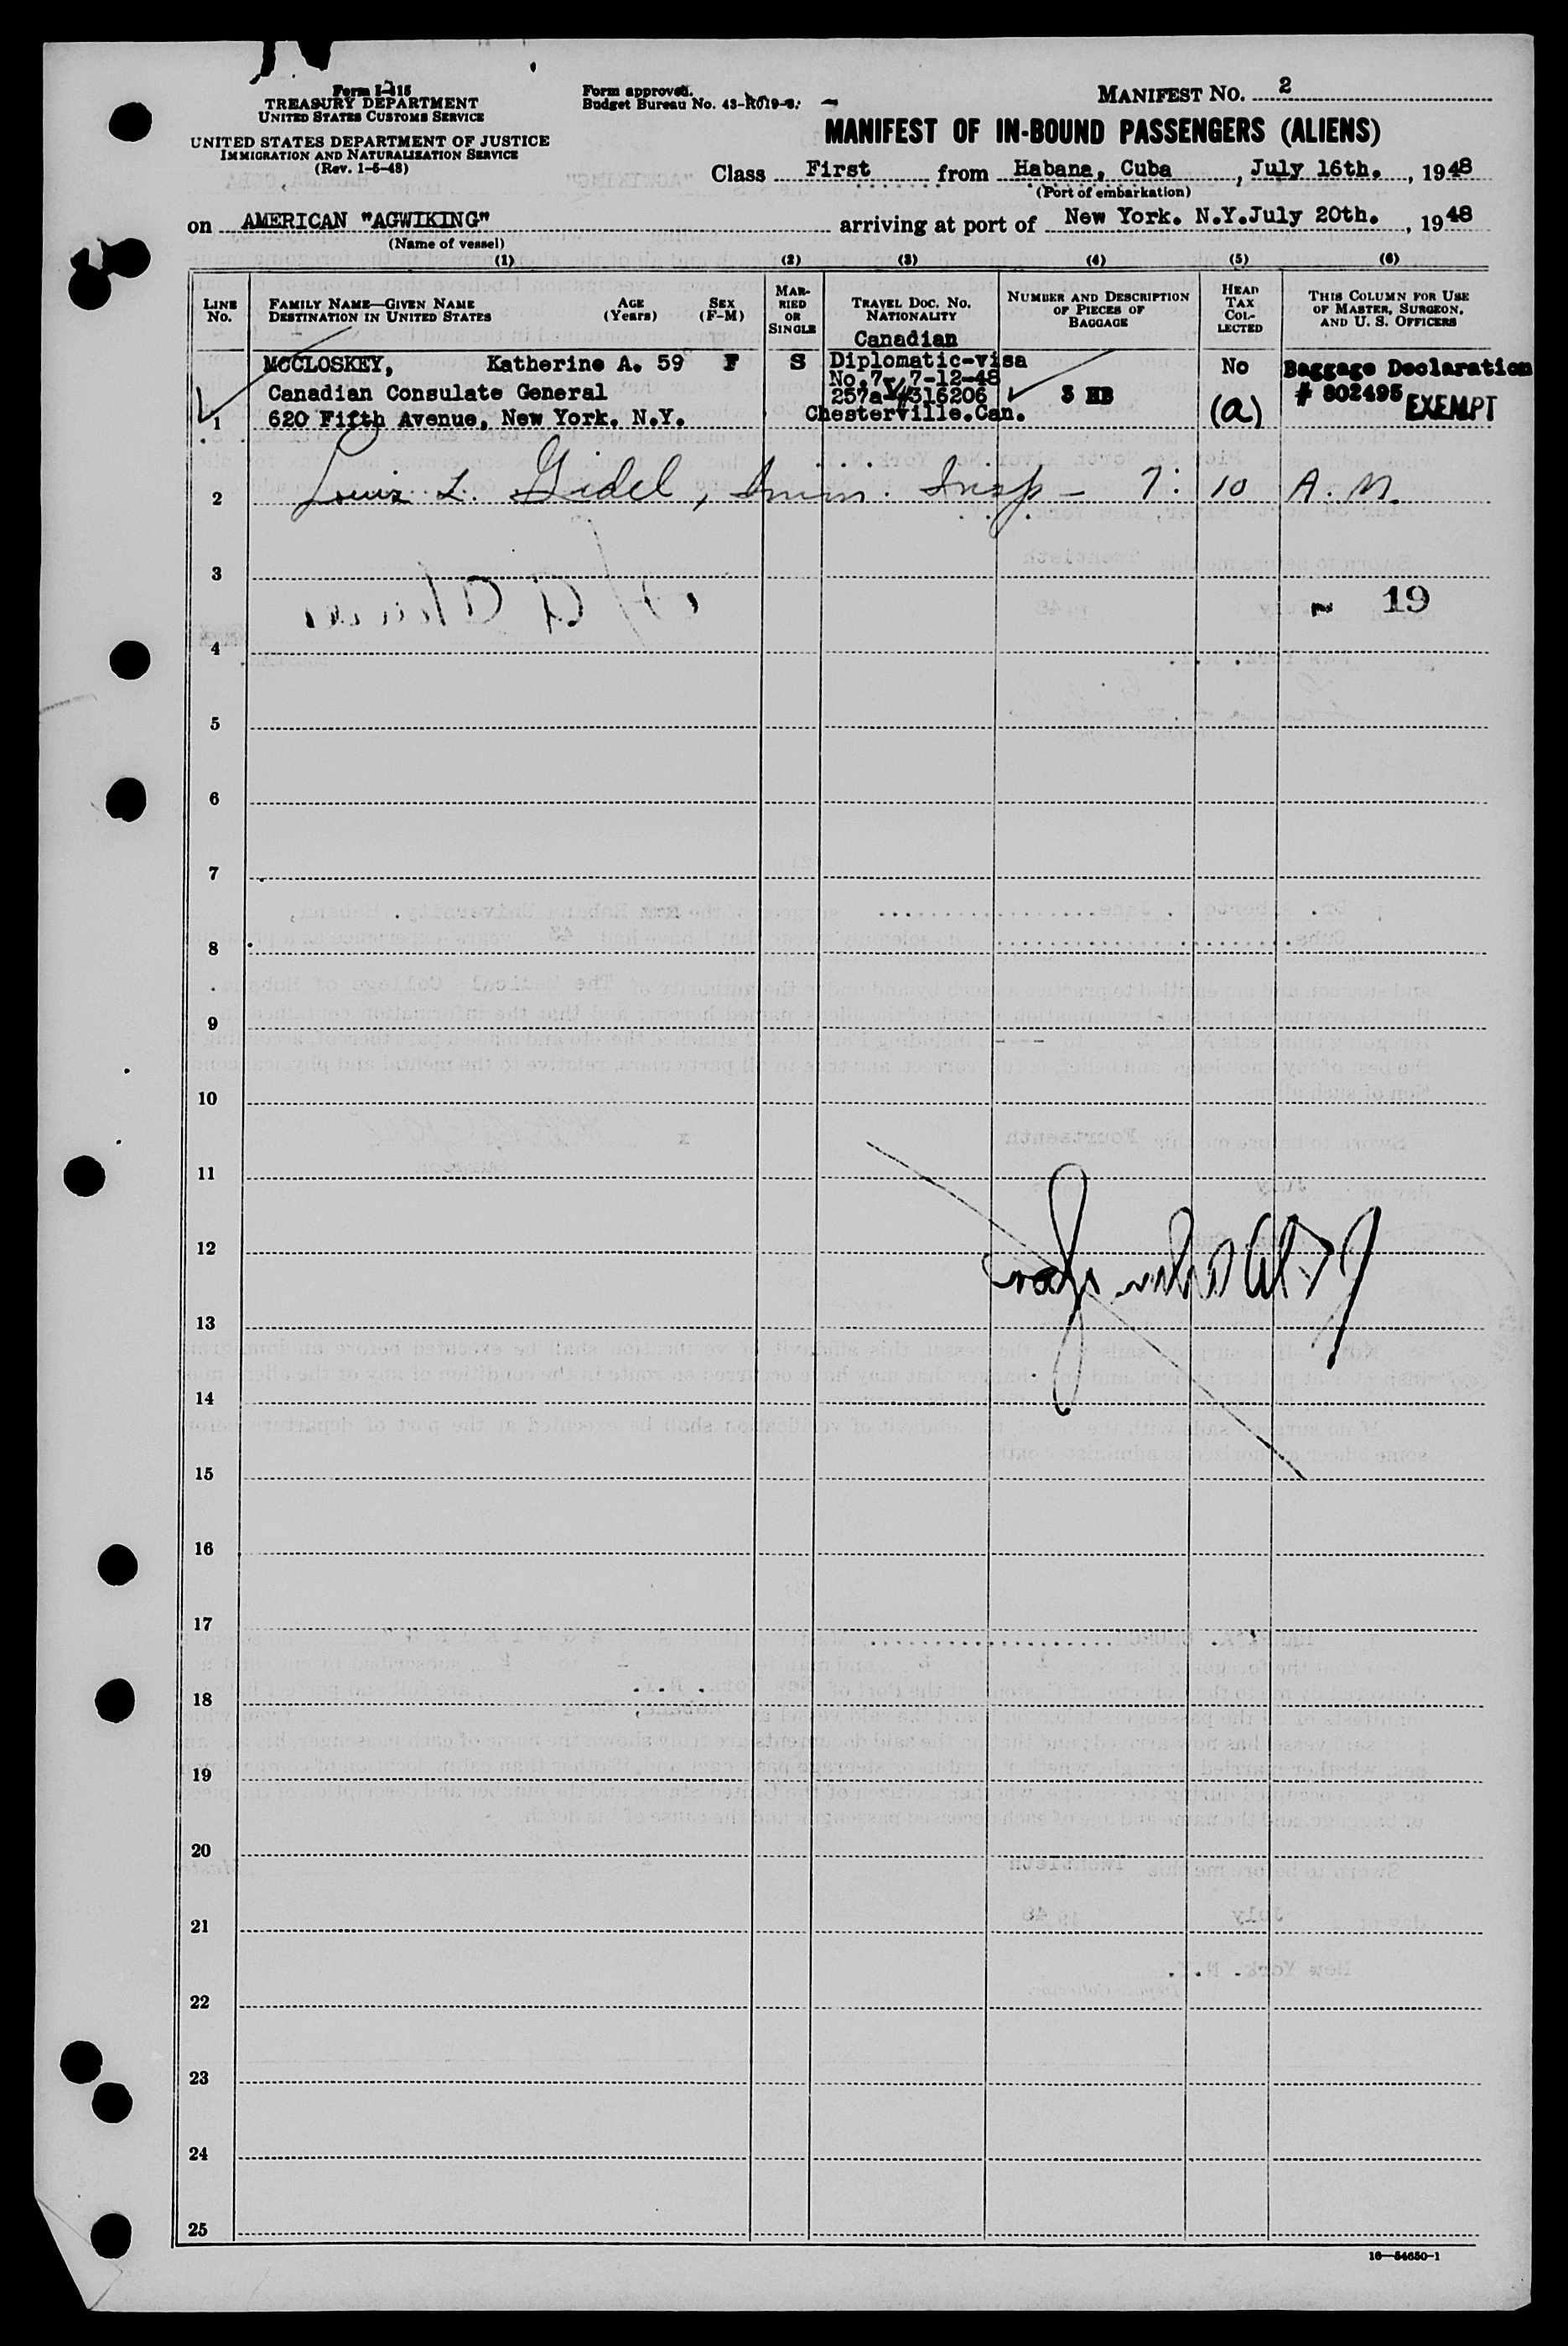 Form I-415
TREASURY DEPARTMENT
UNITED STATES CUSTOMS SERVICE
UNITED STATES DEPARTMENT OF JUSTICE
IMMIGRATION AND NATURALIZATION SERVICE
(Rev. 1-5-48)
Form approved.
Budget Bureau No. 43-R019-3.
MANIFEST NO. 2
MANIFEST OF IN-BOUND PASSENGERS (ALIENS)
Class First from Habana, Cuba, July 16th., 1948
(Port of embarkation)
on AMERICAN "AGWIKING" arriving at port of New York. N.Y. July 20th., 1948
(Name of vessel)
(1) (2) (3) (4) (5) (6)
LINE No.
FAMILY NAME—GIVEN NAME
DESTINATION IN UNITED STATES
AGE (Years)
SEX (F-M)
MARRIED OR SINGLE
TRAVEL DOC. No.
NATIONALITY
NUMBER AND DESCRIPTION OF PIECES OF BAGGAGE
HEAD TAX COLLECTED
THIS COLUMN FOR USE OF MASTER, SURGEON, AND U. S. OFFICERS
Canadian
MCCLOSKEY, Katherine A. 59 F S Diplomatic-visa No Baggage Declaration
No.7 7-12-48
Canadian Consulate General 257a-#316206 3 HB # 802495 EXEMPT
1 620 Fifth Avenue, New York. N.Y. Chesterville.Can. (a)
2 Louis L. Gidel, Imm. Insp - 7:10 A.M.
3
19
4
5
6
7
8
9
10
11
12
13
14
15
16
17
18
19
20
21
22
23
24
25
16—54650-1